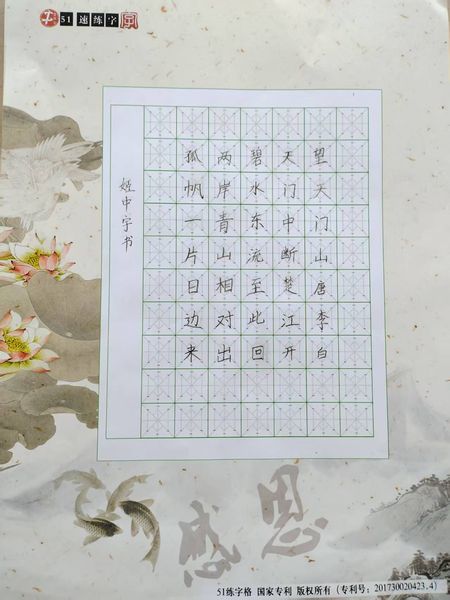 51 速练字
望天门山唐李白
天门中断楚江开
碧水东流至此回
两岸青山相对出
孤帆一片日边来
姬中字书
感恩
51练字格 国家专利 版权所有（专利号：201730020423.4）